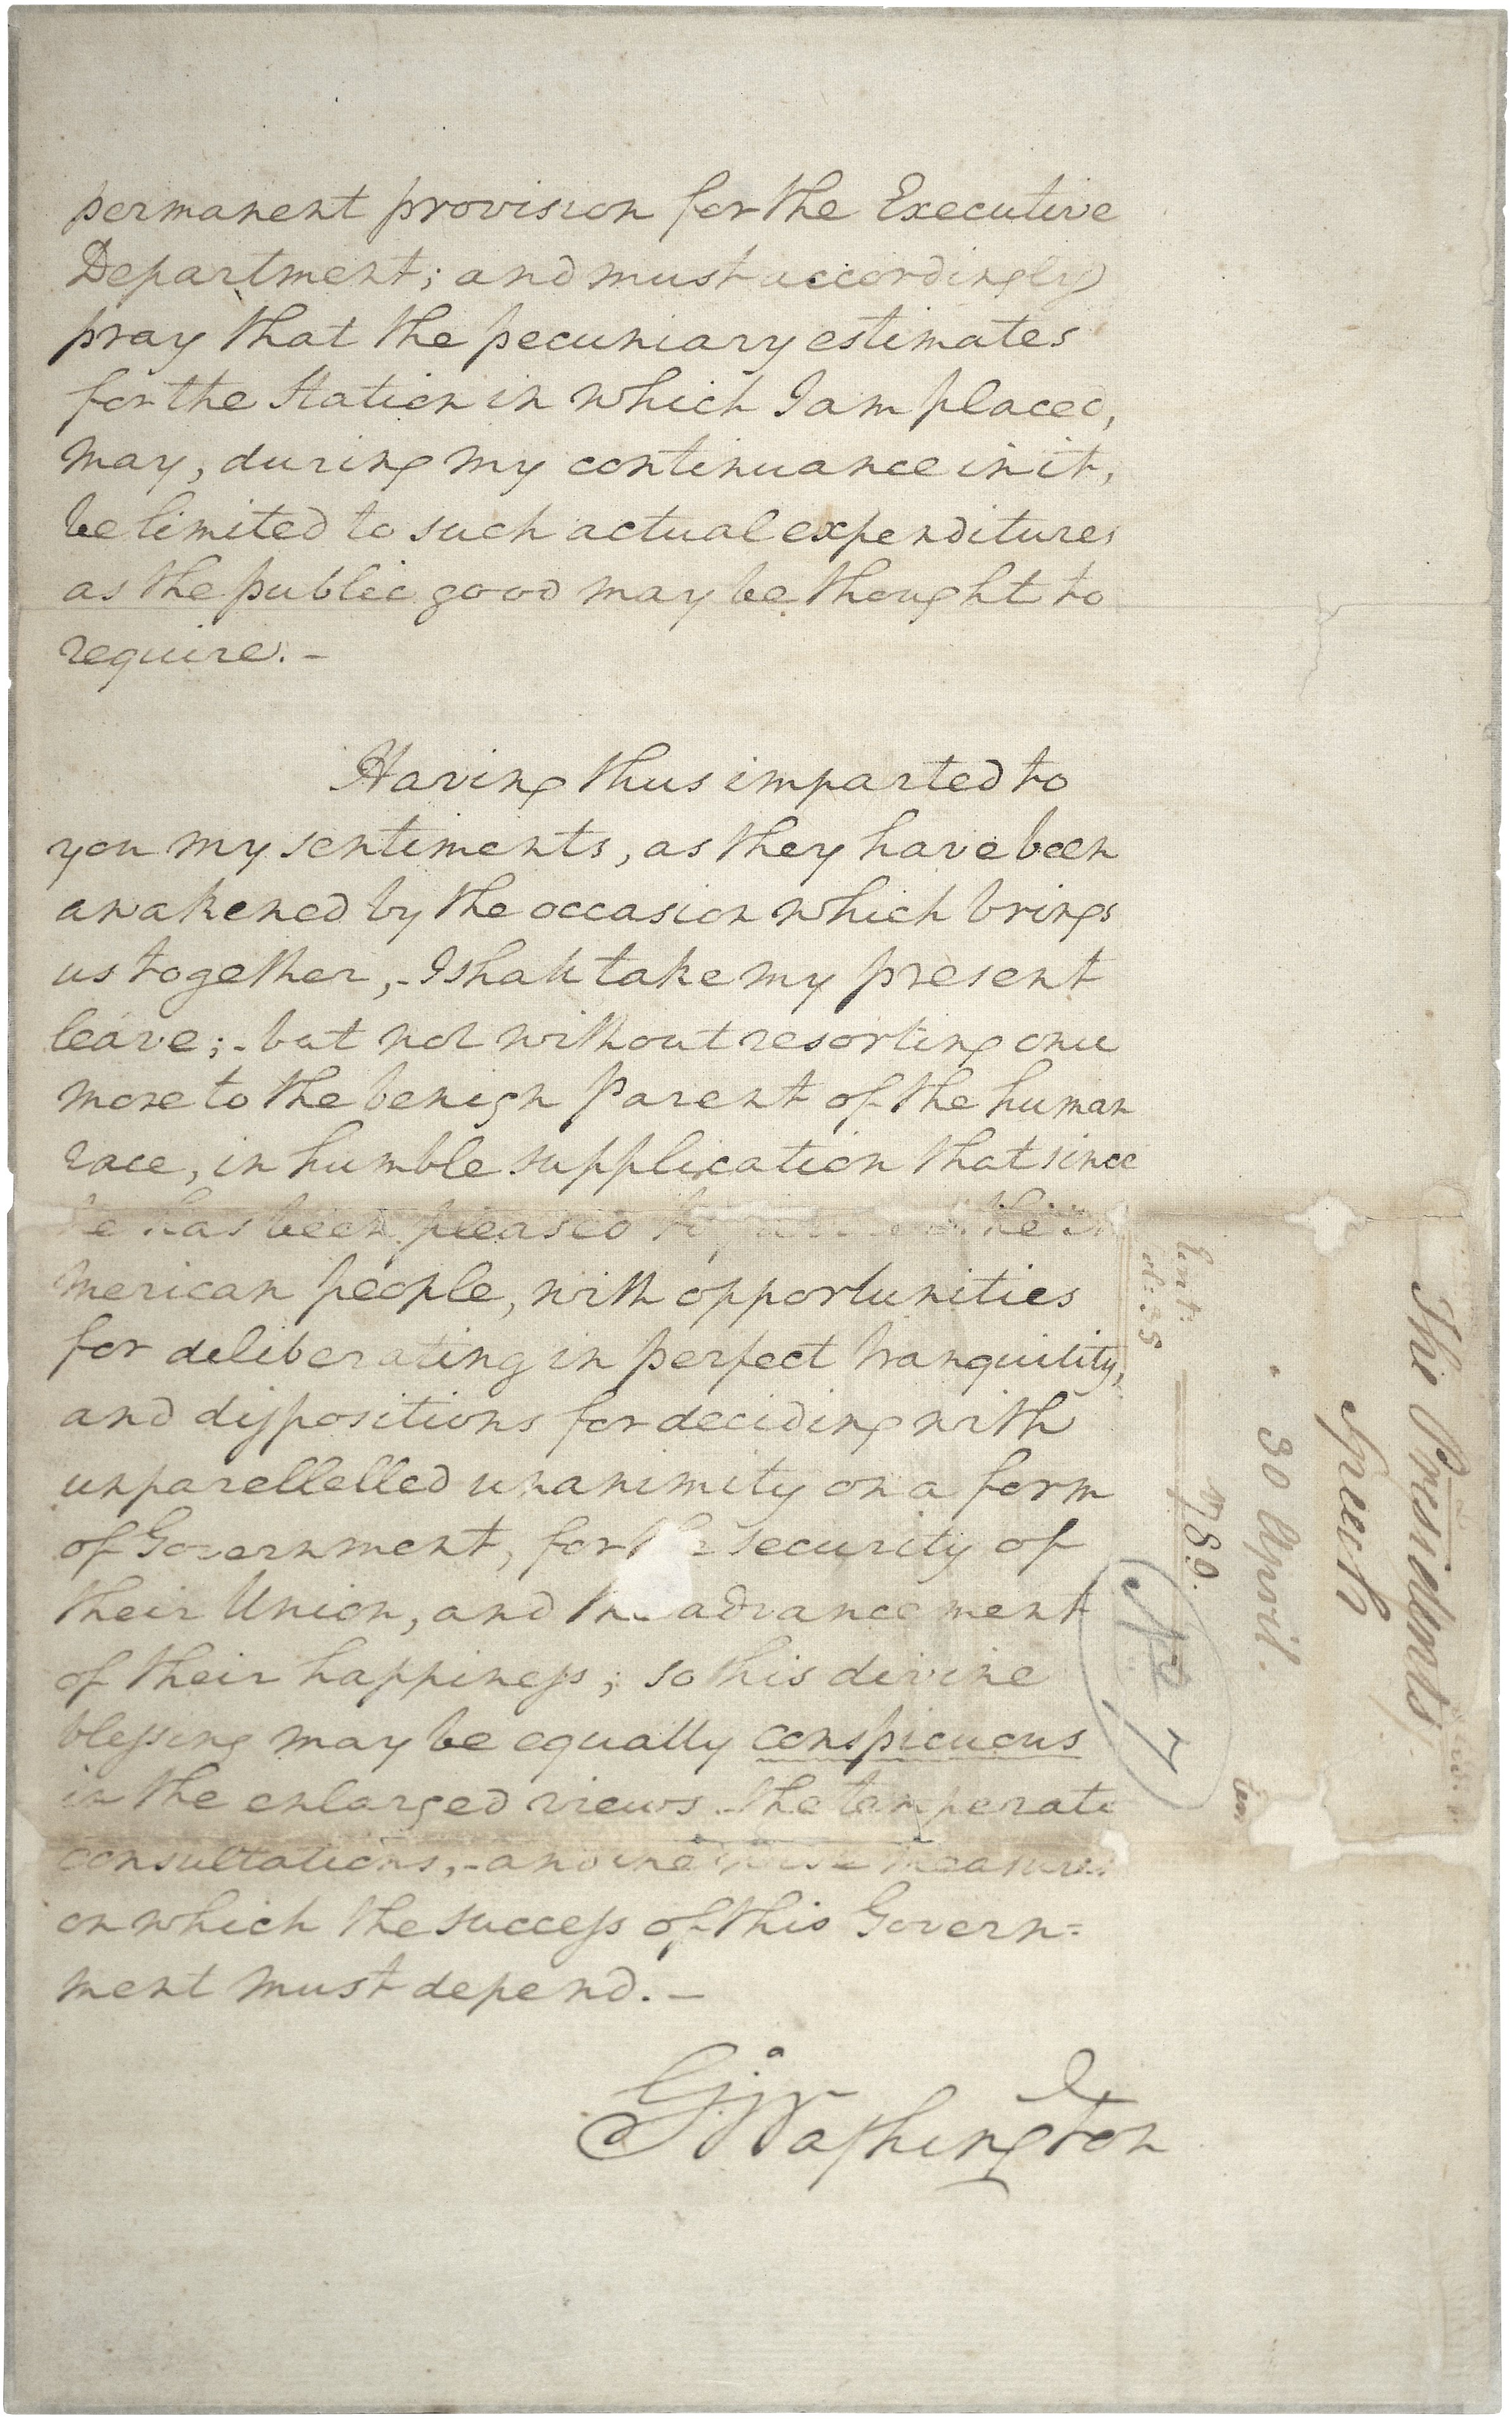 permanent provision for the Executive
Department; and must accordingly
pray that the pecuniary estimates
for the Station in which I am placed,
may, during my continuance in it,
be limited to such actual expenditures
as the public good may be thought to
require. –
Having thus imparted to
you my sentiments, as they have been
awakened by the occasion which brings
us together, - I shall take my present
leave; - but not without resorting once
more to the benign Parent of the human
race, in humble supplication that since
he has been pleased to
merican people, with opportunities
for deliberating in perfect tranquility,
and dispositions for deciding with
unparellelled unanimity on a form
of Government, for the security of
their Union, and the advancement
of their happiness; so his divine
blessing may be equally conspicuous
in the enlarged views - the temperate
consultations, - and the wise measures
on which the success of this Govern=
ment must depend. –
G:Washington
The Presidents
Speech
30 April.
1789.
No 7